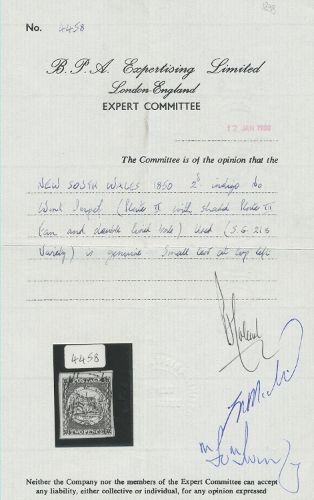 No. 4458
B.P.A. Expertising Limited
London-England
EXPERT COMMITTEE
12 JAN 1988
The Committee is of the opinion that the
NEW SOUTH WALES 1850 2d indigo No
(Plate II with shaded
fan and double lined) Used (S.G. 21b
Variety) is genuine. Small tear at top left
4458
Neither the Company nor the members of the Expert Committee can accept
any liability, either collective or individual, for any opinion expressed